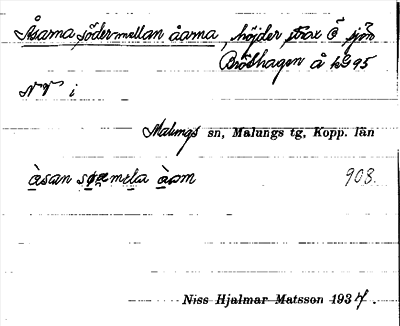 Åsarna södermellan åarna, höjder strax Ö sjön
Brohagen å k 95
NV i
Malungs sn, Malungs tg, Kopp. län
àsan 903.
Niss Hjalmar Matsson 1934.